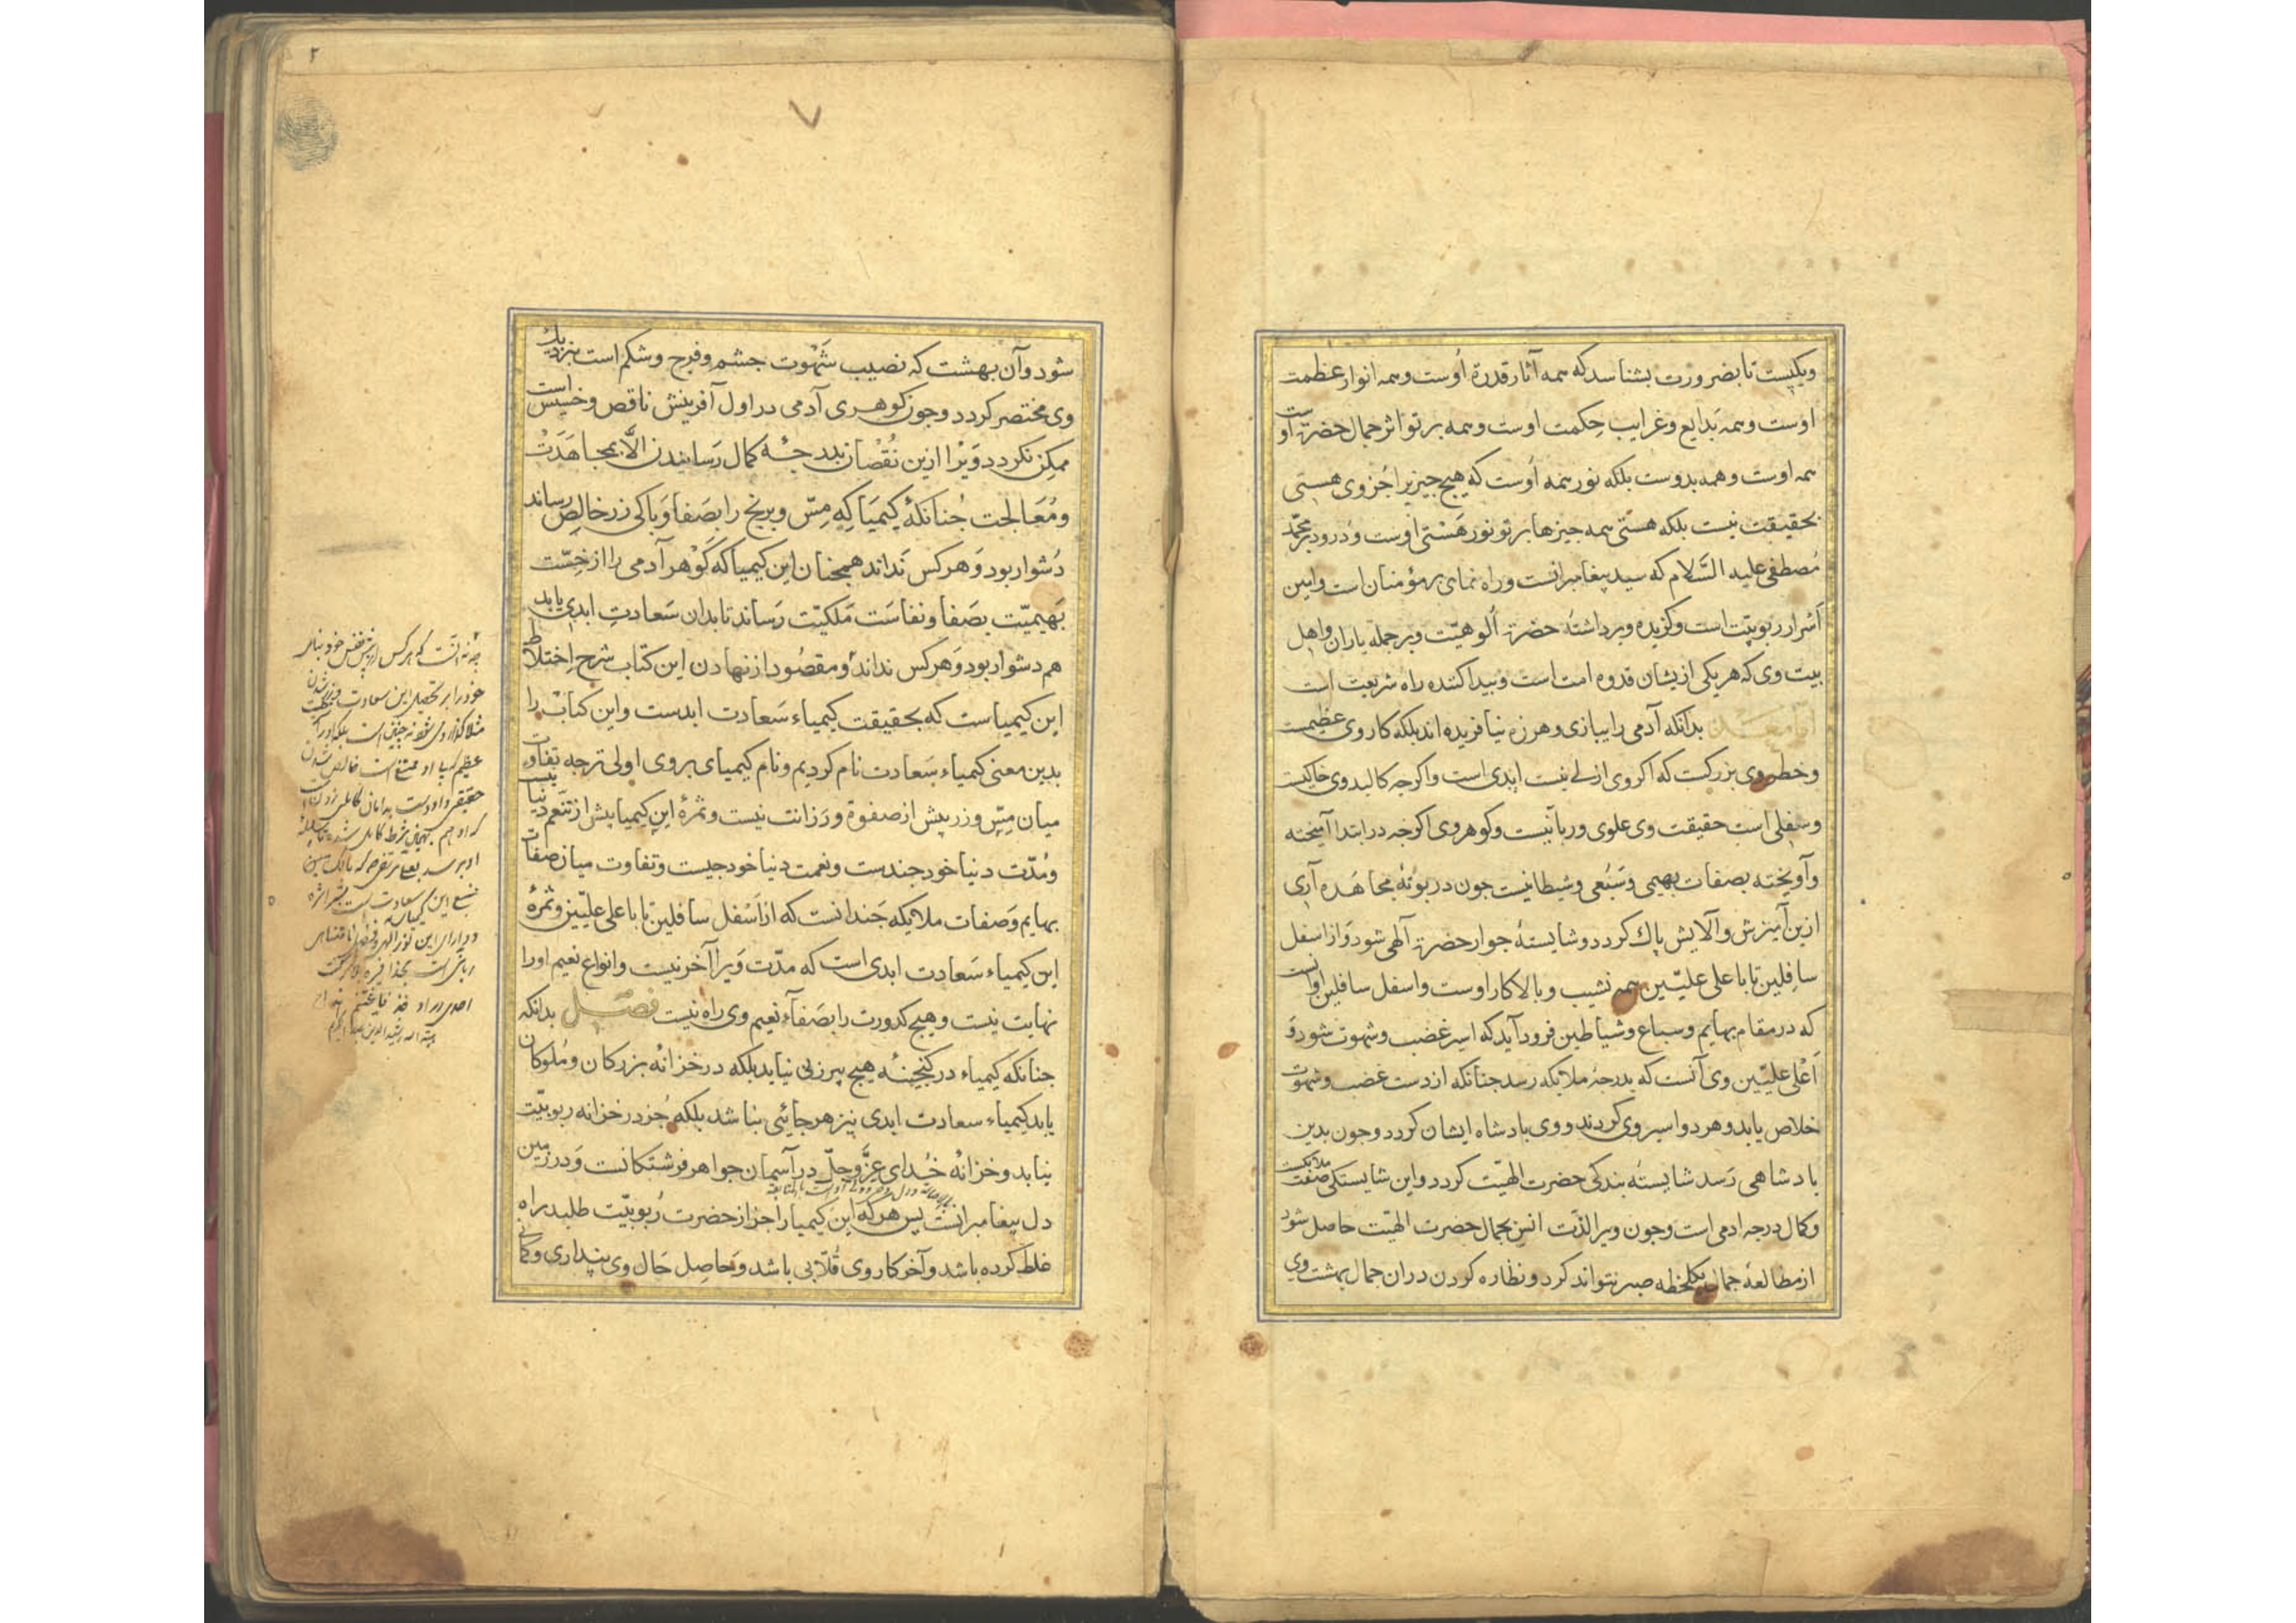 وکیست تا بضرورت بشناسد که همه آثار قدرة اوست وهمه انوار عظمت
اوست وهمه بدایع وغرایب حکمت اوست وهمه برتو اثر جمال حضرت اوست
همه اوست وهمه بدوست بلکه نور همه اوست که هیچ جیز را جز وی هستی
بحقیقت نیست بلکه هستی همه جیزها برتو نور هستی اوست ودرود بر محمد
مصطفی علیه السلام که سید پیغامبرانست وراه نمای مؤمنان است وامین
اسرار ربوبیت است وکزیده وبرداشته حضرة الوهیت وبر جمله یاران واهل
بیت وی که هر یکی ازیشان قدوه امت است وبیدا کننده راه شریعت است
اما بعد بدانکه آدمی را ببازی وهرزه نیافریده اند بلکه کار وی عظیمست
وخطر وی بزرکست که اکر وی ازلی نیست ابدی است واکرجه کالبد وی خاکیست
وسفلی است حقیقت وی علوی وربانیست وکوهر وی اکرجه در ابتدا آمیخته
وآویخته بصفات بهیمی وسبعی وشیطانیست جون در بوته مجاهده آری
ازین آمیزش وآلایش پاک کردد وشایسته جوار حضرة الهی شود واز اسفل
سافلین تا باعلی علیین همه نشیب وبالا کار اوست واسفل سافلین اوانست
که در مقام بهایم وسباع وشیاطین فرود آید که اسیر غضب وشهوت شود و
اعلی علیین وی آنست که بدرجه ملایکه رسد جنانکه از دست غضب وشهوت
خلاص یابد وهر دو اسیر وی کردند ووی بادشاه ایشان کردد وجون بدین
بادشاهی رسد شایسته بندکی حضرت الهیت کردد واین شایستکی صفت ملایکست
وکمال درجه ادمی است وجون ویرا لذت انس بجمال حضرت الهیت حاصل شود
از مطالعه جمال یکلحظه صبر نتواند کرد ونظاره کردن دران جمال بهشت وی
۲
شود وآن بهشت که نصیب شهوت جشم وفرج وشکم است بنزدیک
وی مختصر کردد وجون کوهری آدمی در اول آفرینش ناقص وخسیس است
ممکن نکردد ویرا ازین نقصان بدرجه کمال رسانیدن الا بمجاهدت
ومعالجت جنانکه کیمیا که مس وبرنج را بصفا وپاکی زر خالص رساند
دشوار بود وهر کس نداند همجنان این کیمیا که کوهر آدمی را از خست
بهیمیت بصفا ونفاست ملکیت رساند تا بدان سعادت ابدی یابد
هم دشوار بود وهر کس نداند ومقصود از نهادن این کتاب شرح اختلاط
این کیمیاست که بحقیقت کیمیاء سعادت ابدست واین کتاب را
بدین معنی کیمیاء سعادت نام کردیم ونام کیمیای بر وی اولی تر جه تفاوت
میان مس وزر بیش از صفوة ورزانت نیست وثمره این کیمیا بیش از تنعم دنیا نیست
ومدت دنیا خود جندست ونعمت دنیا خود جیست وتفاوت میان صفات
بهایم وصفات ملایکه جندانست که از اسفل سافلین تا باعلی علیین وثمره
این کیمیاء سعادت ابدی است که مدت ویرا آخر نیست وانواع نعیم او را
نهایت نیست وهیچ کدورت را بصفاء نعیم وی راه نیست فصل بدانکه
جنانکه کیمیاء در کنجینه هیچ پیرزنی نیابد بلکه در خزانه بزرکان وملوکان
یابد کیمیاء سعادت ابدی نیز هر جائی نباشد بلکه جز در خزانه ربوبیت
نیابد وخزانه خدای عز وجل در آسمان جواهر فرشتکانست ودر زمین
دل پیغامبرانست پس هر که این کیمیا را جز از حضرت ربوبیت طلبد راه
غلط کرده باشد وآخر کار وی قلابی باشد وحاصل حال وی پنداری وکمانی